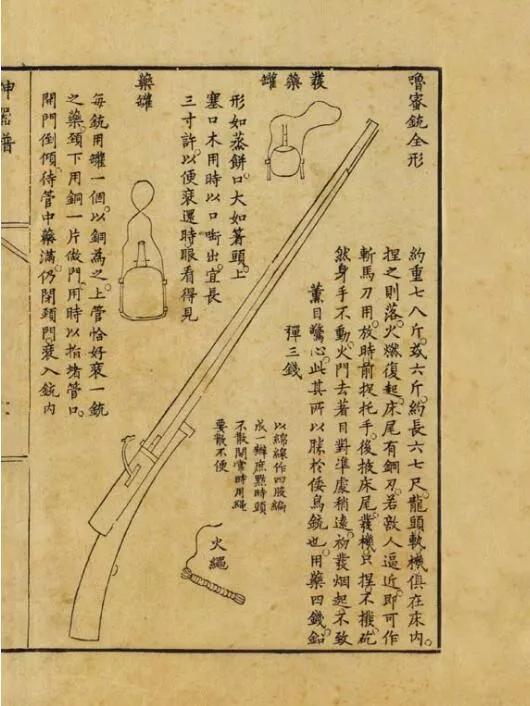 嚕蜜銃全形
約重七八斤。或六斤。約長六七尺。龍頭軌機俱在床内。
捏之則落。火燃復起。床尾有鋼刃。若敵人逼近。即可作
斬馬刀用。放時前捉托手。後掖床尾。發機只捏不撥。砣
然身手不動。火門去著目對準處稍遠。初發烟起。不致
薰目驚心。此其所以勝於倭鳥銃也。用藥四錢鉛
彈三錢
發藥罐
形如蒸餅。口大如箸頭。上
塞口木。用時以口啣出。宜長
三寸許。以便裝還時眼看得見
以綿線作四股編
成一辮。庶點時頭
不散開。常時用繩
要散不便
火繩
藥罐
每銃用罐一個。以銅為之。上管恰好裝一銃
之藥。頸下用銅一片做門。用時以指堵管口。
開門倒傾。待管中藥滿。仍閉頸門。裝入銃内
神器譜